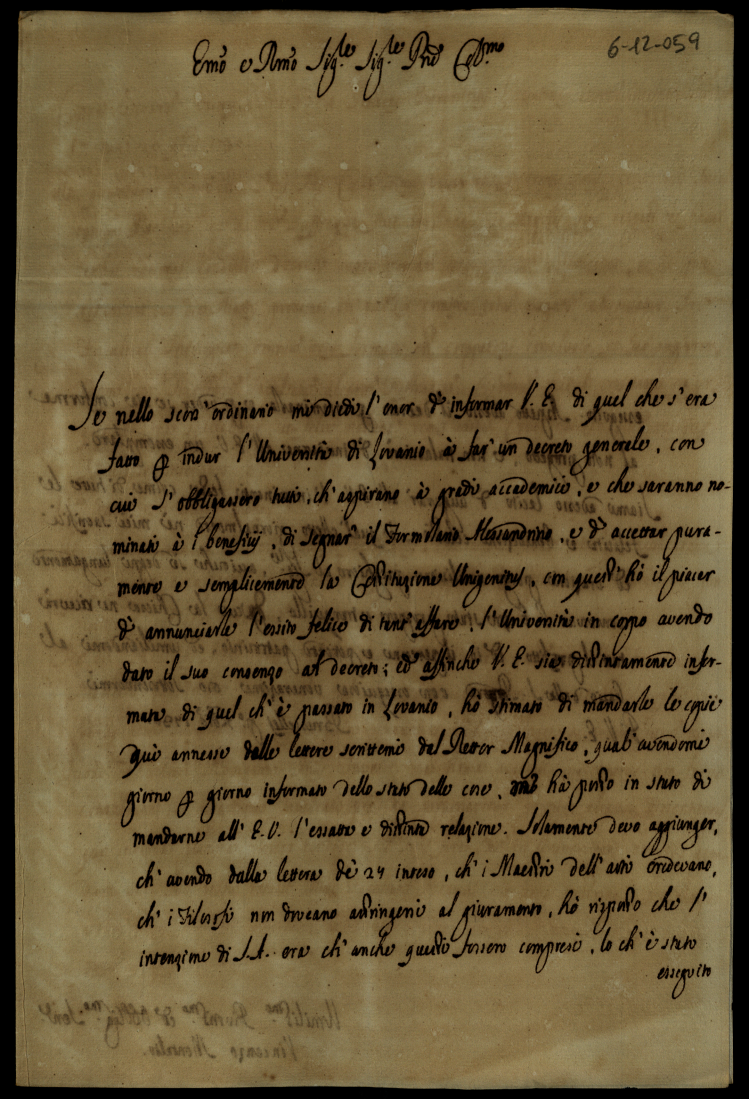 6-12-059
Emo e Rmo Sig.le Sig.le Pne Colmo
Se nello scors' ordinario mi diedi l'onor di informar V. E. di quel che s'era
fatto p indur l'Università di Lovanio à far' un decreto generale, con
cui s'obbligassero tutti, ch'aspirano à gradi accademici, e che saranno no-
minati à i beneficij, di segnar' il Formolario Alessandrino, e di accettar pura-
mente e semplicemente la Constituzione Unigenitus, con questa hò il piacer
di annunciarle l'essito felice di tant' affare, l'Università in corpo avendo
dato il suo consenso al decreto; ed affinche V. E. sia distintamente infor-
mata di quel ch'è passato in Lovanio, hò stimato di mandarle le copie
quì annesse delle lettere scrittemi dal Rettor Magnifico, quali avendomi
giorno p giorno informato dello stato delle cose, hà posto in stato di
mandarne all' E. V. l'essatta e distinta relazione. Solamente devo aggiunger,
ch'avendo dalla lettera de 24 inteso, ch'i Maestri dell'arti credevano,
ch'i Filosofi non doveano astringersi al giuramento, hò risposto che l'
intenzione di S.A. era ch'anche questi fossero compresi, lo ch'è stato
esseguito